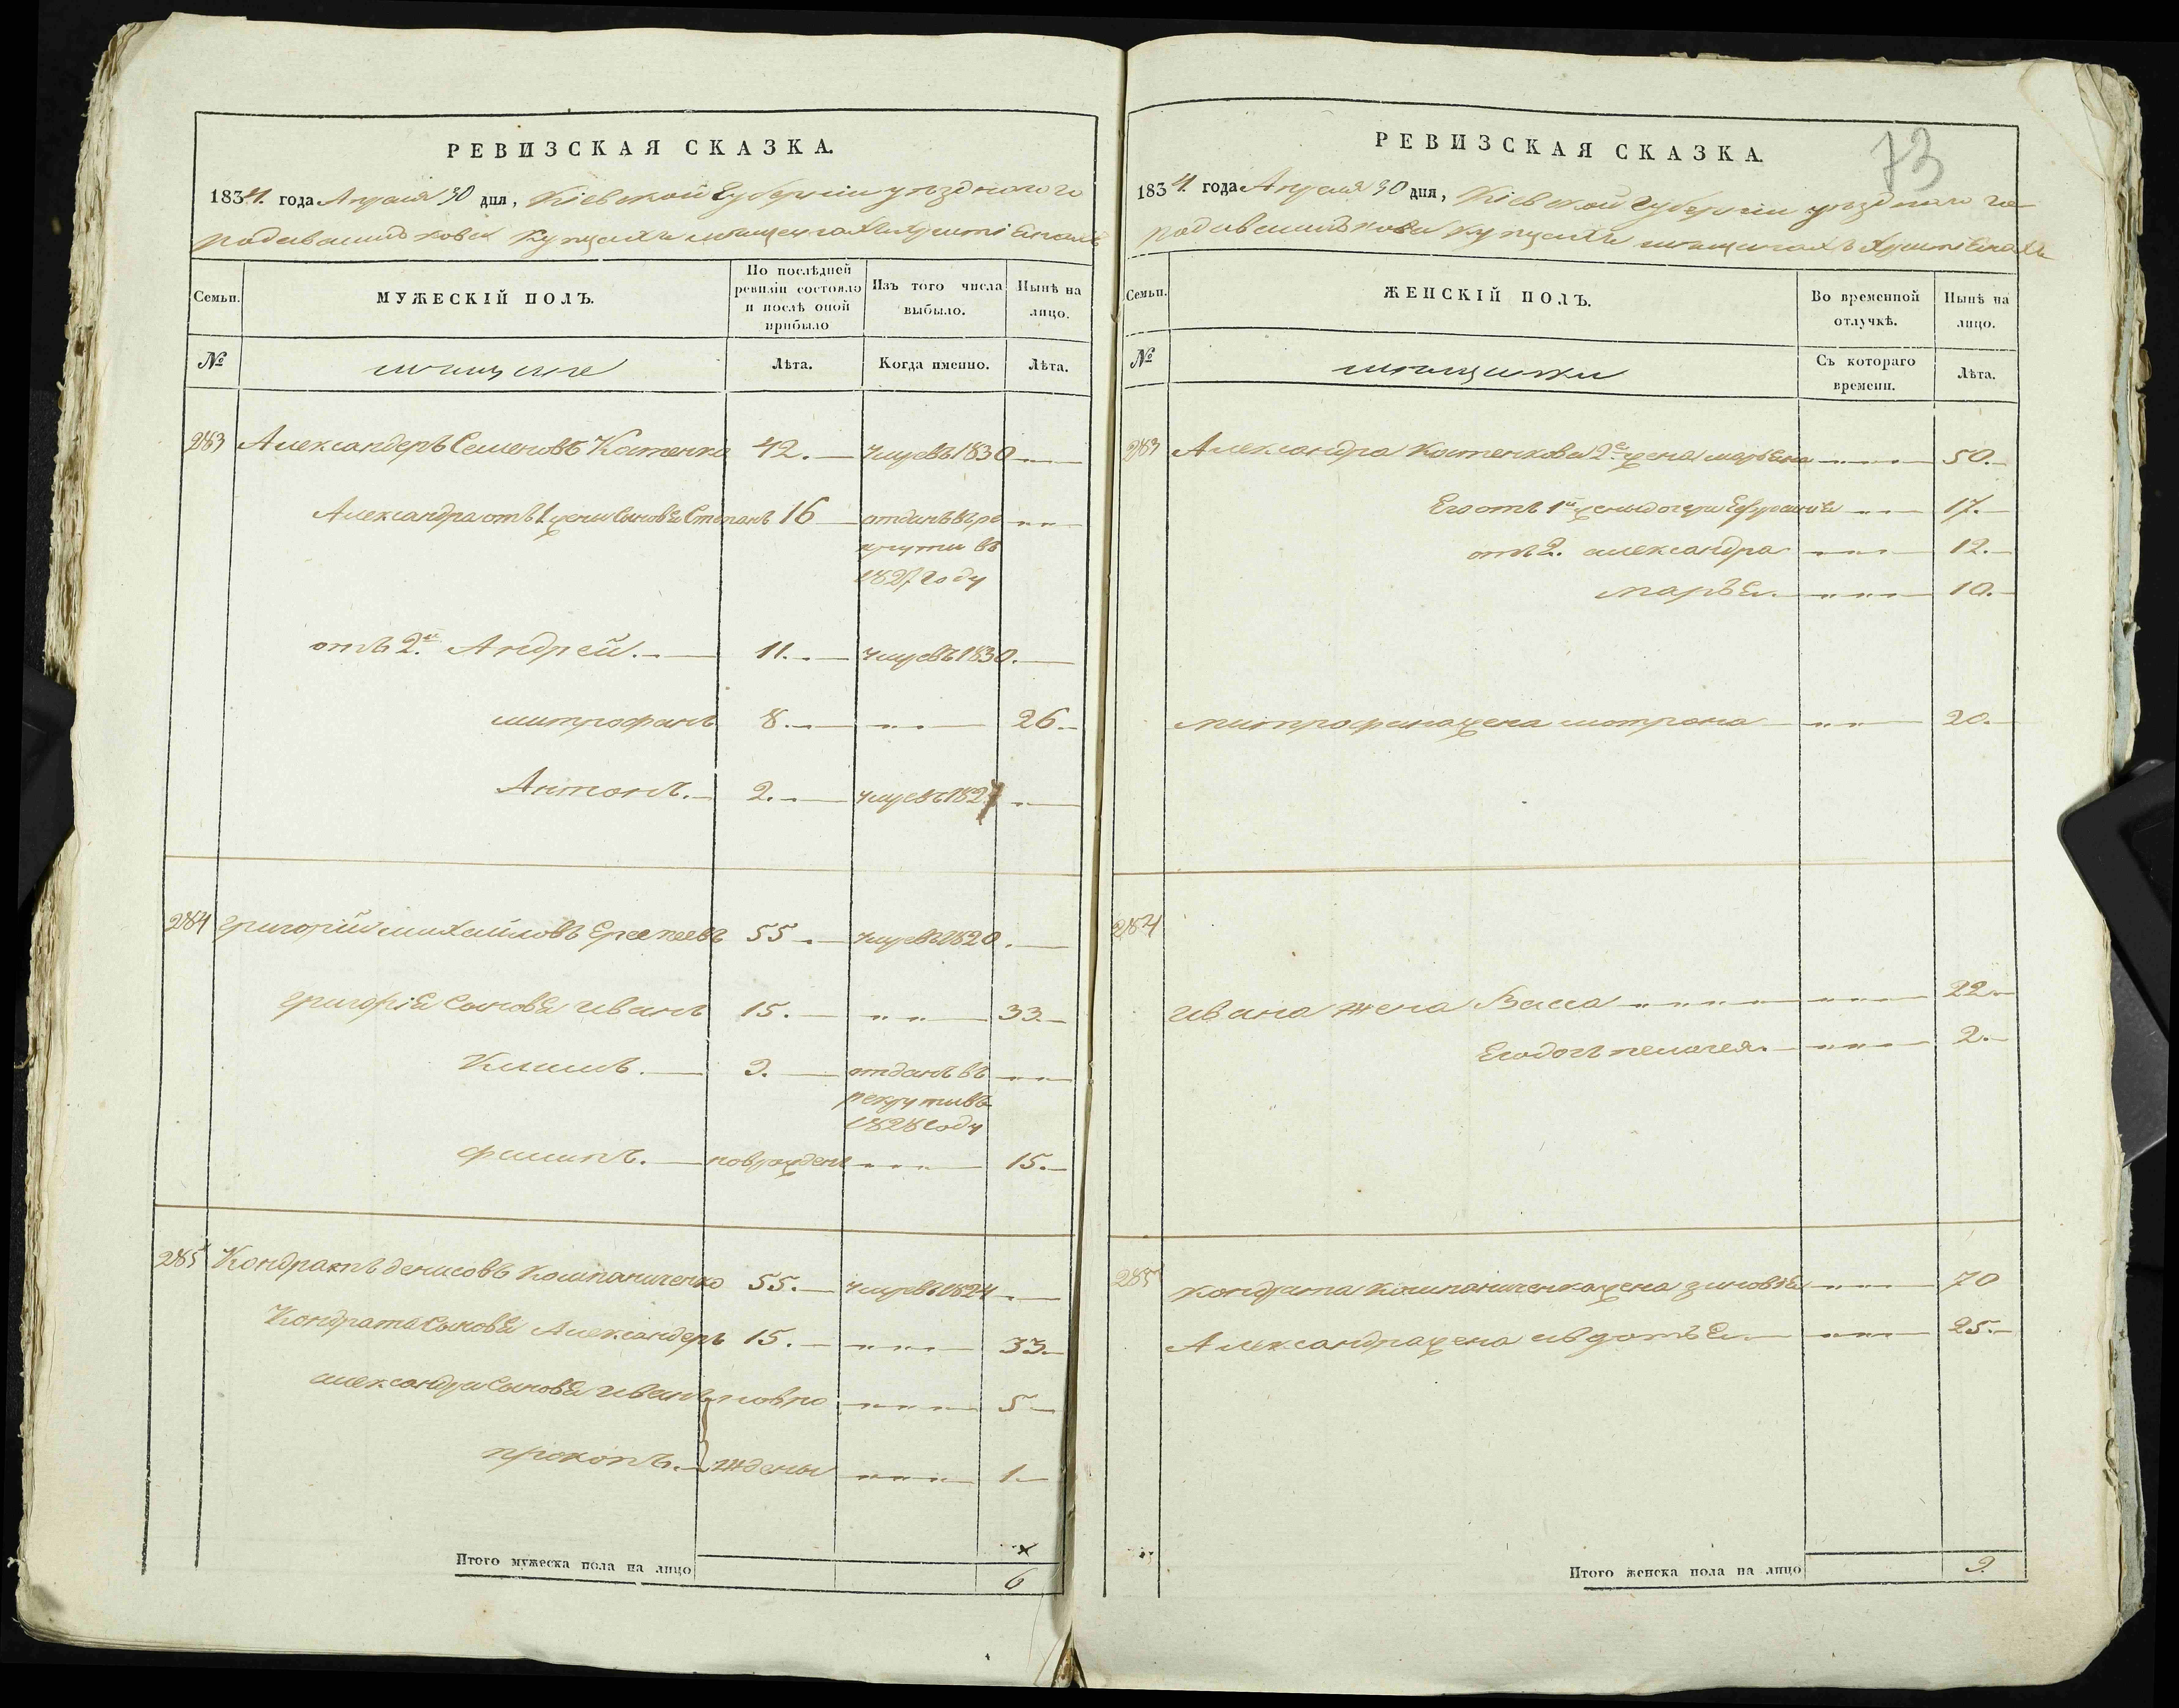 РЕВИЗСКАЯ СКАЗКА.
1834. года Апреля 30 дня, Кіевской Губерніи уѣзднаго го
рода василькова купцахъ мѣщенахъ христіянахъ
Семьи.
МУЖЕСКІЙ ПОЛЪ.
По послѣдней ревизіи состояло и послѣ оной прибыло
Изъ того числа выбыло.
Нынѣ на лицо.
№
мѣщане
Лѣта.
Когда именно.
Лѣта.
283 Александеръ Семеновъ Костенко 42. умревъ 1830
Александра отъ 1 жены сыновья Степанъ 16 отданъ въ ре
круты въ
1827 году
отъ 2й Андрей. 11. умревъ 1830.
митрофанъ 8. 26
Антонъ. 2. умревъ 1827
284 григорій михайловъ 55 умревъ 1820.
григорія сыновья иванъ 15. 33
Климъ. 9. отданъ въ
рекруты въ
1828 году
филипъ. новрожденъ 15.
285 Кондратъ денисовъ компаниченко 55. умревъ 1824
Кондрата сыновья Александеръ 15. 33
александра сыновья иванъ новро 5
прокопъ. жденыи 1.
Итого мужеска пола на лицо 6
73
РЕВИЗСКАЯ СКАЗКА.
1834. года Апреля 30 дня, Кіевской Губерніи уѣзднаго го
рода василькова купцахъ мѣщанахъ христіянахъ
Семьи.
ЖЕНСКІЙ ПОЛЪ.
Во временной отлучкѣ.
Нынѣ на лицо.
№
мѣщанки
Съ котораго времени.
Лѣта.
283 Александра Костенкова 2я жена марья 50.
Его отъ 1й жены дочери Ефросинія 17.
отъ 2. александра 12.
марья 10.
митрофана жена мотрона 20.
284
ивана жена Васса 22
Его дочь пелагея. 2.
285 кондрата компаниченка жена зиновія 70
Александра жена авдотья 25.
Итого женска пола на лицо 9.